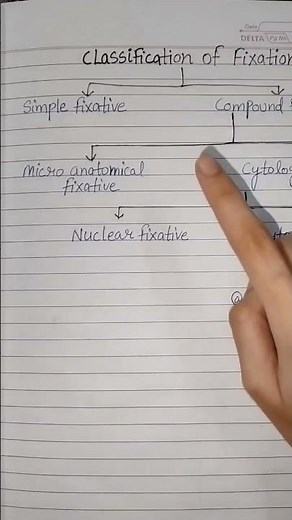 Date
DELTA
Classification of Fixation
Simple fixative Compound
Micro anatomical
fixative
Nuclear fixative